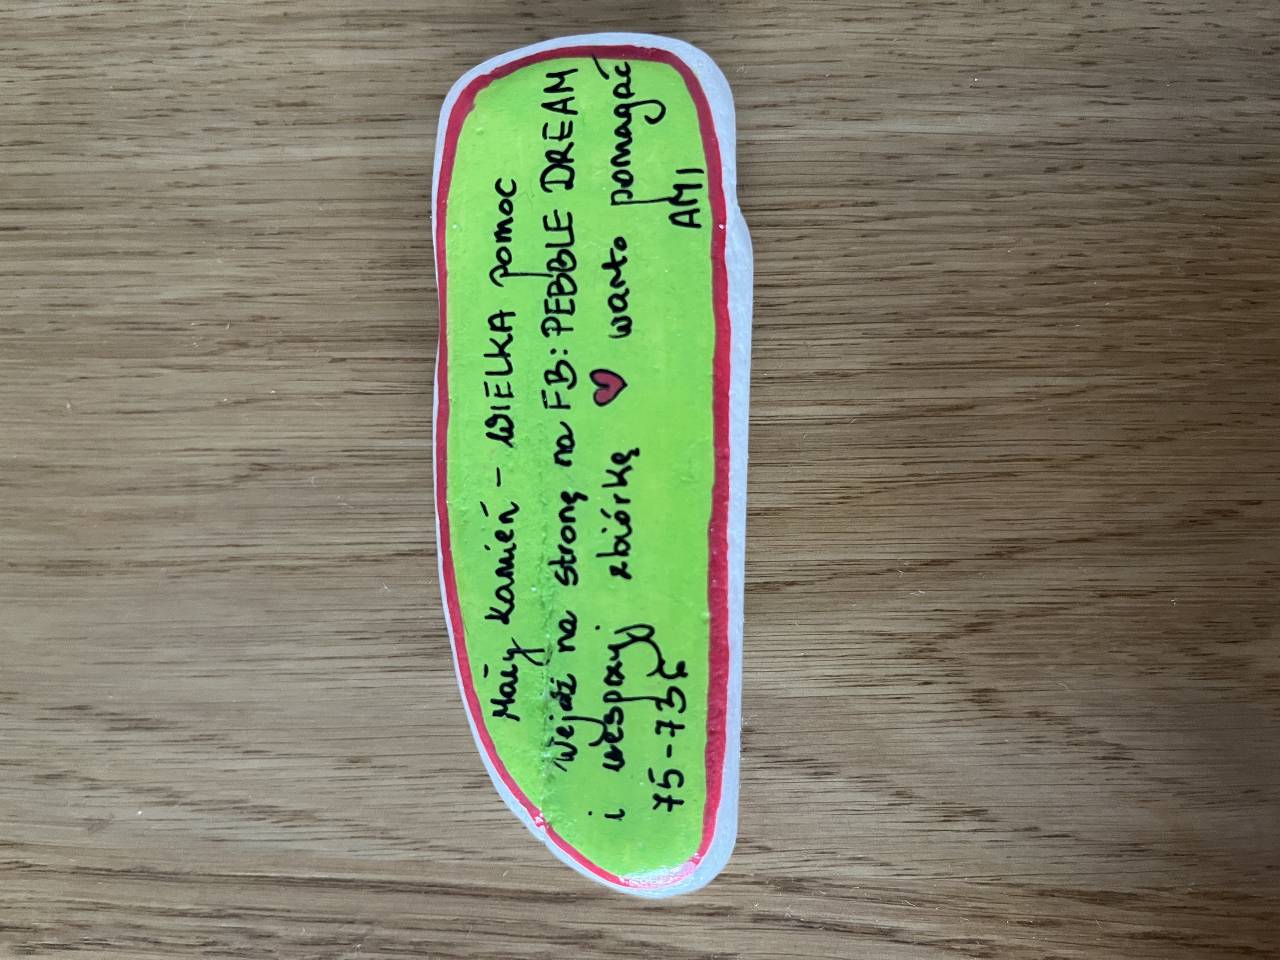 Mały kamień - WIELKA pomoc
Wejdź na stronę na FB: PEBBLE DREAM
i wesprzyj zbiórkę ♥ warto pomagać
75-736 AMI